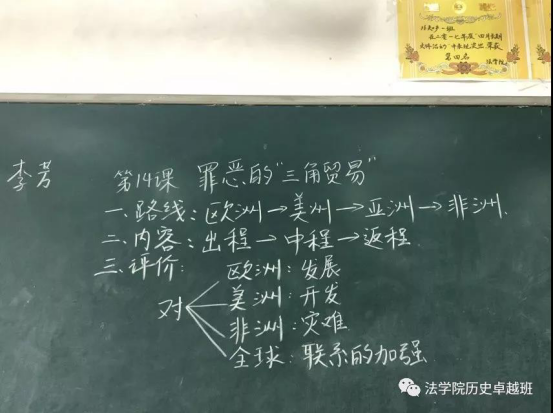 第四名
法学院
李芳
第14课 罪恶的"三角贸易"
一、路线：欧洲→美州→亚洲→非洲.
二、内容：出程→中程→返程.
三、评价：
对
欧洲：发展
美洲：开发
非洲：灾难
全球：联系的加强.
法学院历史卓越班